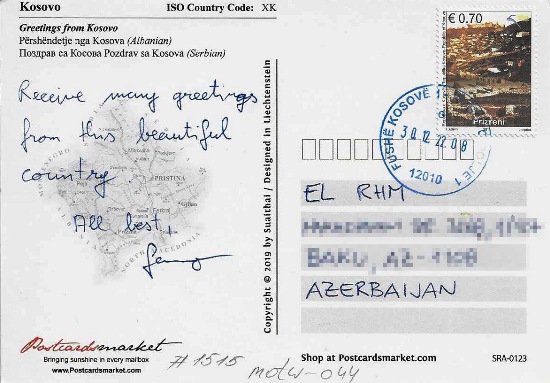 Kosovo
ISO Country Code: XK
Greetings from Kosovo
Përshëndetje nga Kosova (Albanian)
Поздрав са Косова Pozdrav sa Kosova (Serbian)
Receive many greetings
from this beautiful
country.
All best,
PRISTINA
NORTH MACEDONIA
Postcardsmarket
Bringing sunshine in every mailbox
www.Postcardsmarket.com
#1515
motw-044
Copyright © 2019 by Suaithai / Designed in Liechtenstein
€ 0.70
Prizreni
FUSHË KOSOVË 1
30.12.22.08
12010
EL RHM
BAKU, AZ-1108
AZERBAIJAN
Shop at Postcardsmarket.com
SRA-0123